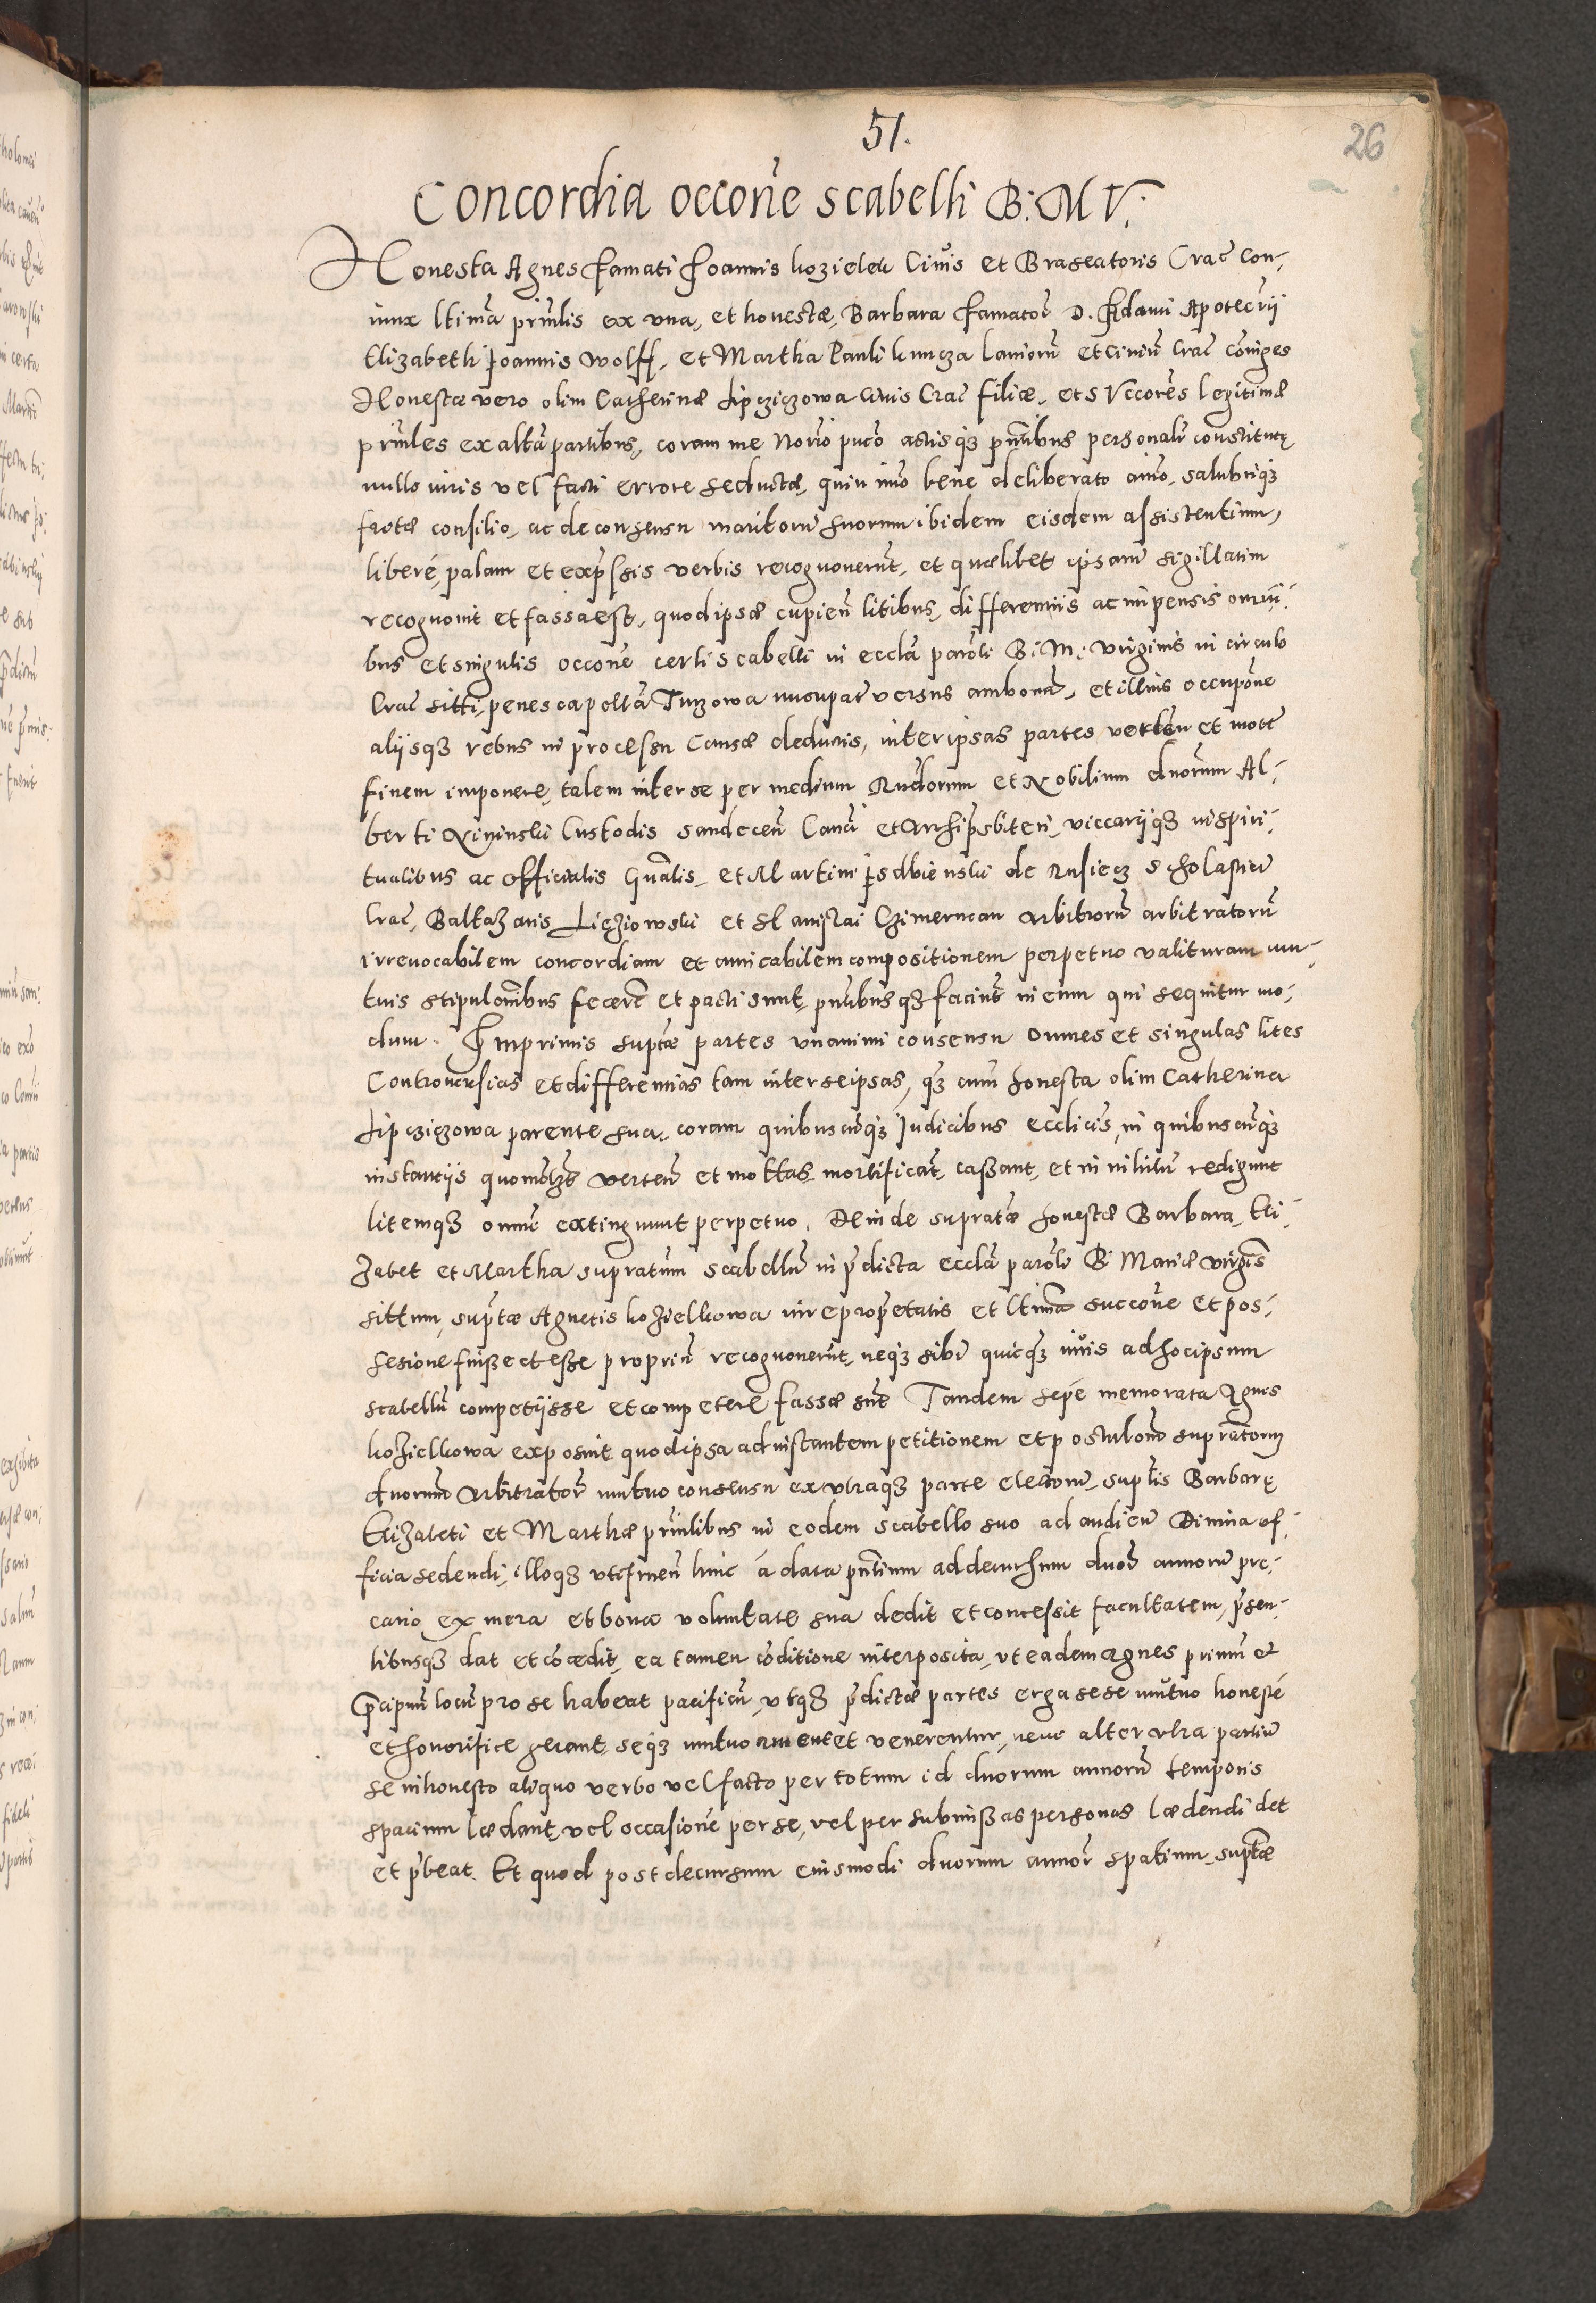 51.
26
Concordia occone scabelli B: M V:
Honesta Agnes famati Joannis kozielek Civis et Braseatoris Crac Con-
iunx ltima prinlis ex vna, et honestæ, Barbara famator D. Adami Apotecrii
Elizabeth Joannis Wolff, et Martha Pauli kuncza laniorum et civium Crac coniuges
Honestæ vero olim Catherinæ Lipcziczowa civis Crac filiæ, et s Vccores legitimæ
prinles ex altera partibus, coram me Norio puco actisqz pntibus personalr constitutę
nullo iuris vel facti errore seductæ, quin imo bene deliberato aimo, salubriqz
fretæ consilio, ac de consensu maritorum suorum ibidem eisdem assistentium,
liberé, palam et expssis verbis recognoverunt, et quælibet ipsarum sigillatim
recognovit et fassa est, quod ipsæ cupien litibus, differentiis ac impensis omni-
bus et singulis occone certi scabelli in eccla paroli B: M: Virginis in circulo
Crac sitti, penes capella Turzowa nuncupat versus ambona, et illius occupone
aliisqz rebus in processu Causæ deductis, inter ipsas partes verten et mott
finem imponere, talem inter se per medium Rndorum et Nobilium dnorum Al-
berti Custodis Sandecen Canci et Archipsbiteri, viccariiqz in spiri-
tualibus ac Officialis Gnalis, et Martini psdbienski de Rusiecz Scholastici
Crac, Baltazaris Licziowski et Stanislai Czimerman Arbitrorum arbitratorum
irrevocabilem concordiam et amicabilem compositionem perpetuo valituram mu-
tuis stipulonibus fecerunt et pacti sunt, pntibusqz faciunt in eum qui sequitur mo-
dum. Imprimis suptæ partes vnanimi consensu omnes et singulas lites
Controversias et differentias tam inter se ipsas, qz cum honesta olim Catherina
Lipcziczowa parente sua, coram quibuscunqz Judicibus ecclicis, in quibuscunqz
instantiis quomolzt verten et mottas mortificant, cassant, et in nihilum redigunt
litemqz omne extingunt perpetuo, Deinde supratæ honestæ Barbara, Eli-
zabet et Martha supratum scabellum in pdicta eccla paroli B: Mariæ virginis
sittum, suptæ Agnetis kozielkowa iure propetatis et ltimæ succone et pos-
sesione fuisse et esse proprium recognoverunt, neqz sibi quicqz iuris ad hoc ipsum
scabellum competiisse et competere fassæ sunt Tandem sepé memorata Agnes
kozielkowa exposuit quod ipsa ad instantem petitionem et postulono supratorum
dnorum Arbitrator mutuo consensu ex vtraqz parte electorum, suptis Barbarę
Elizabeti et Marthæ prinlibus in eodem scabello suo ad audien Divina of-
ficia sedendi, illoqz vtifruen hinc á data pntium ad decursum duor annorum pre-
cario, ex mera et bona voluntate sua dedit et concessit facultatem, psen-
tibusqz dat et cocedit, ea tamen coditione interposita, vt eadem Agnes primum et
pcipuum locum pro se habeat pacificum, vtqz pdictæ partes erga sese mutuo honesté
et honorifice gerant, seqz mutuo ament et venerentur, neve altervtra partium
se inhonesto aliquo verbo vel facto per totum id duorum annorum temporis
spacium lædant, vel occasione per se, vel per submissas personas lædendi det
et pbeat. Et quod post decursum eiusmodi duorum annor spatium, suptæ